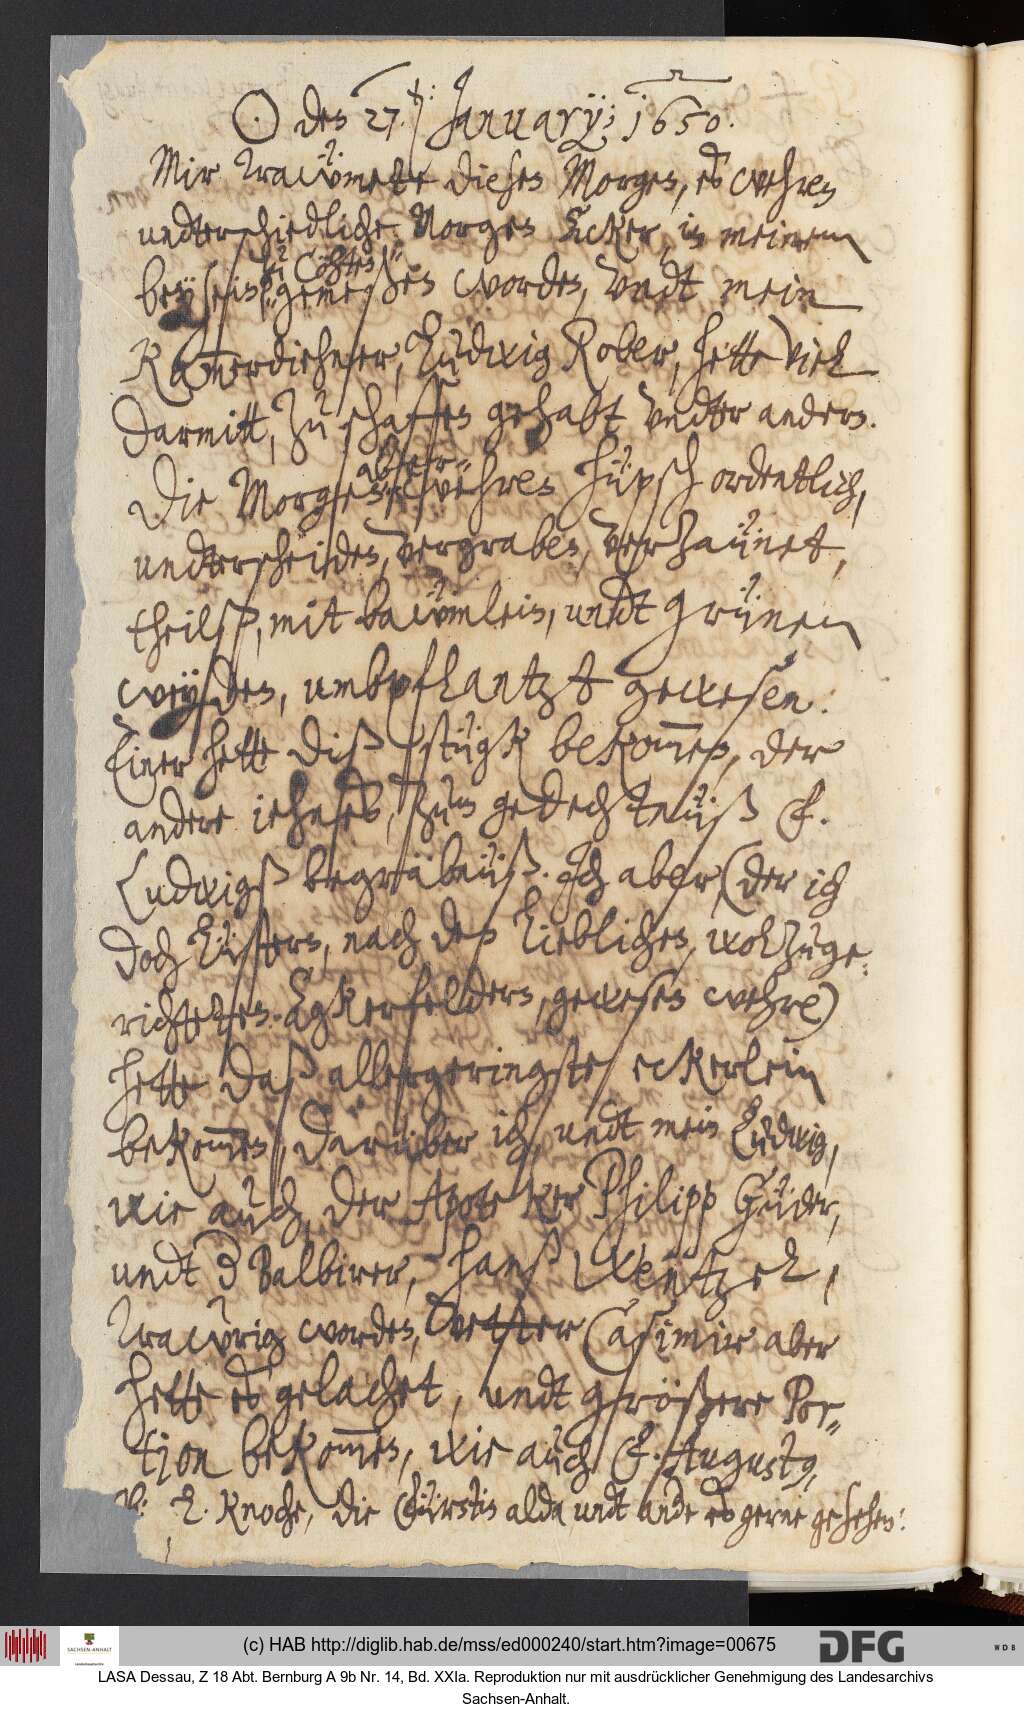 ☉ den 27. January; 1650.
Mir traẅmete diesen Morgen, es wehren
undterschiedliche Morgen Äcker, in meinem
beÿsein, zu Cöhten gemeßen worden, undt mein
Kam̅erdiehner, Ludwig Rober, hette viel
darmitt, zu schaffen gehabt undter andern.
Die Morgen aber wehren hüpsch ordentlich,
undterscheiden, vergraben, verzaünet,
theilß, mit baẅmlein, undt grünen
weÿden, umbpflantzt gewesen.
Einer hette diß stügk bekom̅en, der
andere iehnes, zum gedechtnüß F.
Ludwigß begräbnüß. Ich aber, (der ich
doch lüstern, nach den lieblichen, wolzuge-
richteten Egkerfeldern, gewesen wehre)
hette daß allergeringste eckerlein
bekom̅en, darüber ich, undt mein Ludwig,
wie auch, der Apoteker Philipp Güder,
undt d Balbirer, Hanß Wentzel,
trawrig worden, Vetter Casimir aber
hette es gelachet, undt größere Por-
tion bekom̅en, wie auch F. Augustus,
v. L. Knoche, die Fürstin alda undt ande es gerne gesehen.
(c) HAB http://diglib.hab.de/mss/ed000240/start.htm?image=00675
SACHSEN-ANHALT
DFG
WDB
LASA Dessau, Z 18 Abt. Bernburg A 9b Nr. 14, Bd. XXIa. Reproduktion nur mit ausdrücklicher Genehmigung des Landesarchivs
Sachsen-Anhalt.